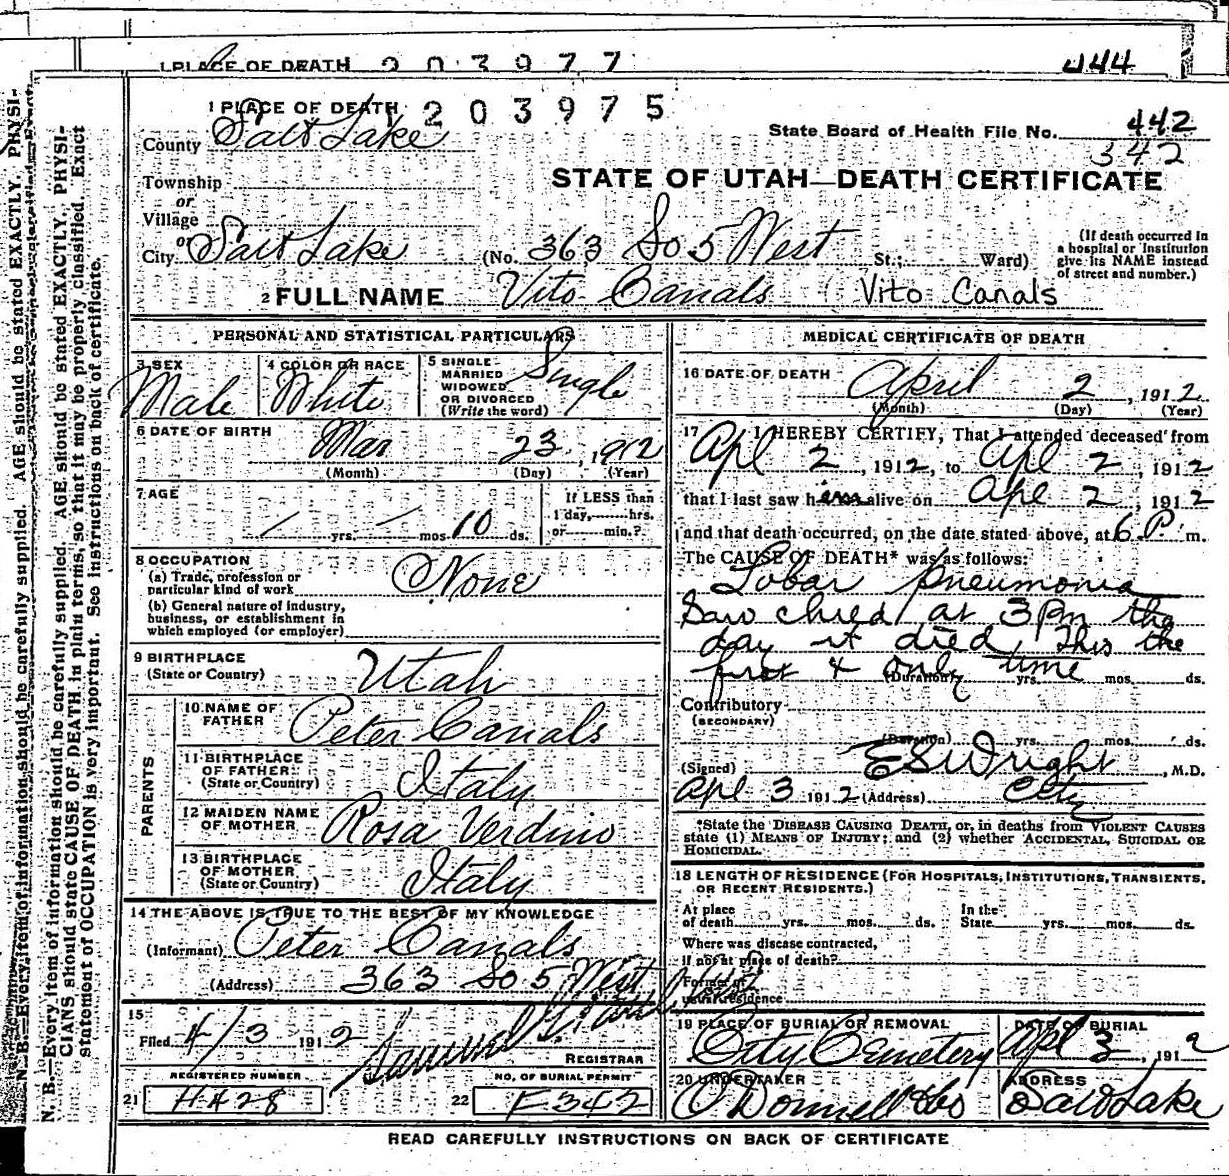 1 PLACE OF DEATH 203977 444
1 PLACE OF DEATH 203975
State Board of Health File No. 442
342
County Salt Lake
STATE OF UTAH—DEATH CERTIFICATE
Township
or
Village
or
City Salt Lake (No. 363 So 5 West St.; Ward)
(If death occurred in a hospital or institution give its NAME instead of street and number.)
2 FULL NAME Vito Canals (Vito Canals
PERSONAL AND STATISTICAL PARTICULARS
3 SEX Male
4 COLOR OR RACE White
5 SINGLE MARRIED WIDOWED OR DIVORCED (Write the word) Single
6 DATE OF BIRTH Mar 23, 1912
(Month) (Day) (Year)
7 AGE / yrs. / mos. 10 ds.
If LESS than 1 day, hrs. or min.?
8 OCCUPATION
(a) Trade, profession or particular kind of work None
(b) General nature of industry, business, or establishment in which employed (or employer)
9 BIRTHPLACE (State or Country) Utah
PARENTS
10 NAME OF FATHER Peter Canals
11 BIRTHPLACE OF FATHER (State or Country) Italy
12 MAIDEN NAME OF MOTHER Rosa Verdino
13 BIRTHPLACE OF MOTHER (State or Country) Italy
14 THE ABOVE IS TRUE TO THE BEST OF MY KNOWLEDGE
(Informant) Peter Canals
(Address) 363 So 5 West
15 Filed 4/3 1912 Samuel G. REGISTRAR
REGISTERED NUMBER
21 H428
NO. OF BURIAL PERMIT
22 F342
MEDICAL CERTIFICATE OF DEATH
16 DATE OF DEATH April 2, 1912
(Month) (Day) (Year)
17 I HEREBY CERTIFY, That I attended deceased from
Apl 2, 1912, to Apl 2, 1912
that I last saw him alive on Apl 2, 1912
and that death occurred, on the date stated above, at 6 P. m.
The CAUSE OF DEATH* was as follows:
Lobar Pneumonia
Saw child at 3 Pm the
day it died, This the
first & only time
(Duration) yrs. mos. ds.
Contributory (SECONDARY)
(Duration) yrs. mos. ds.
(Signed) E S Wright, M.D.
Apl 3 1912 (Address) City
*State the DISEASE CAUSING DEATH, or, in deaths from VIOLENT CAUSES
state (1) MEANS OF INJURY; and (2) whether ACCIDENTAL, SUICIDAL OR
HOMICIDAL.
18 LENGTH OF RESIDENCE (FOR HOSPITALS, INSTITUTIONS, TRANSIENTS,
OR RECENT RESIDENTS.)
At place of death yrs. mos. ds. In the State yrs. mos. ds.
Where was disease contracted,
if not at place of death?
Former or
usual residence
19 PLACE OF BURIAL OR REMOVAL City Cemetery
DATE OF BURIAL Apl 3, 1912
20 UNDERTAKER O'Donnell & Co
ADDRESS Salt Lake
READ CAREFULLY INSTRUCTIONS ON BACK OF CERTIFICATE
N. B.—Every item of information should be carefully supplied. AGE should be stated EXACTLY. PHYSI-
N. B.—Every item of information should be carefully supplied. AGE should be stated EXACTLY. PHYSI-
CIANS should state CAUSE OF DEATH in plain terms, so that it may be properly classified. Exact
statement of OCCUPATION is very important. See instructions on back of certificate.